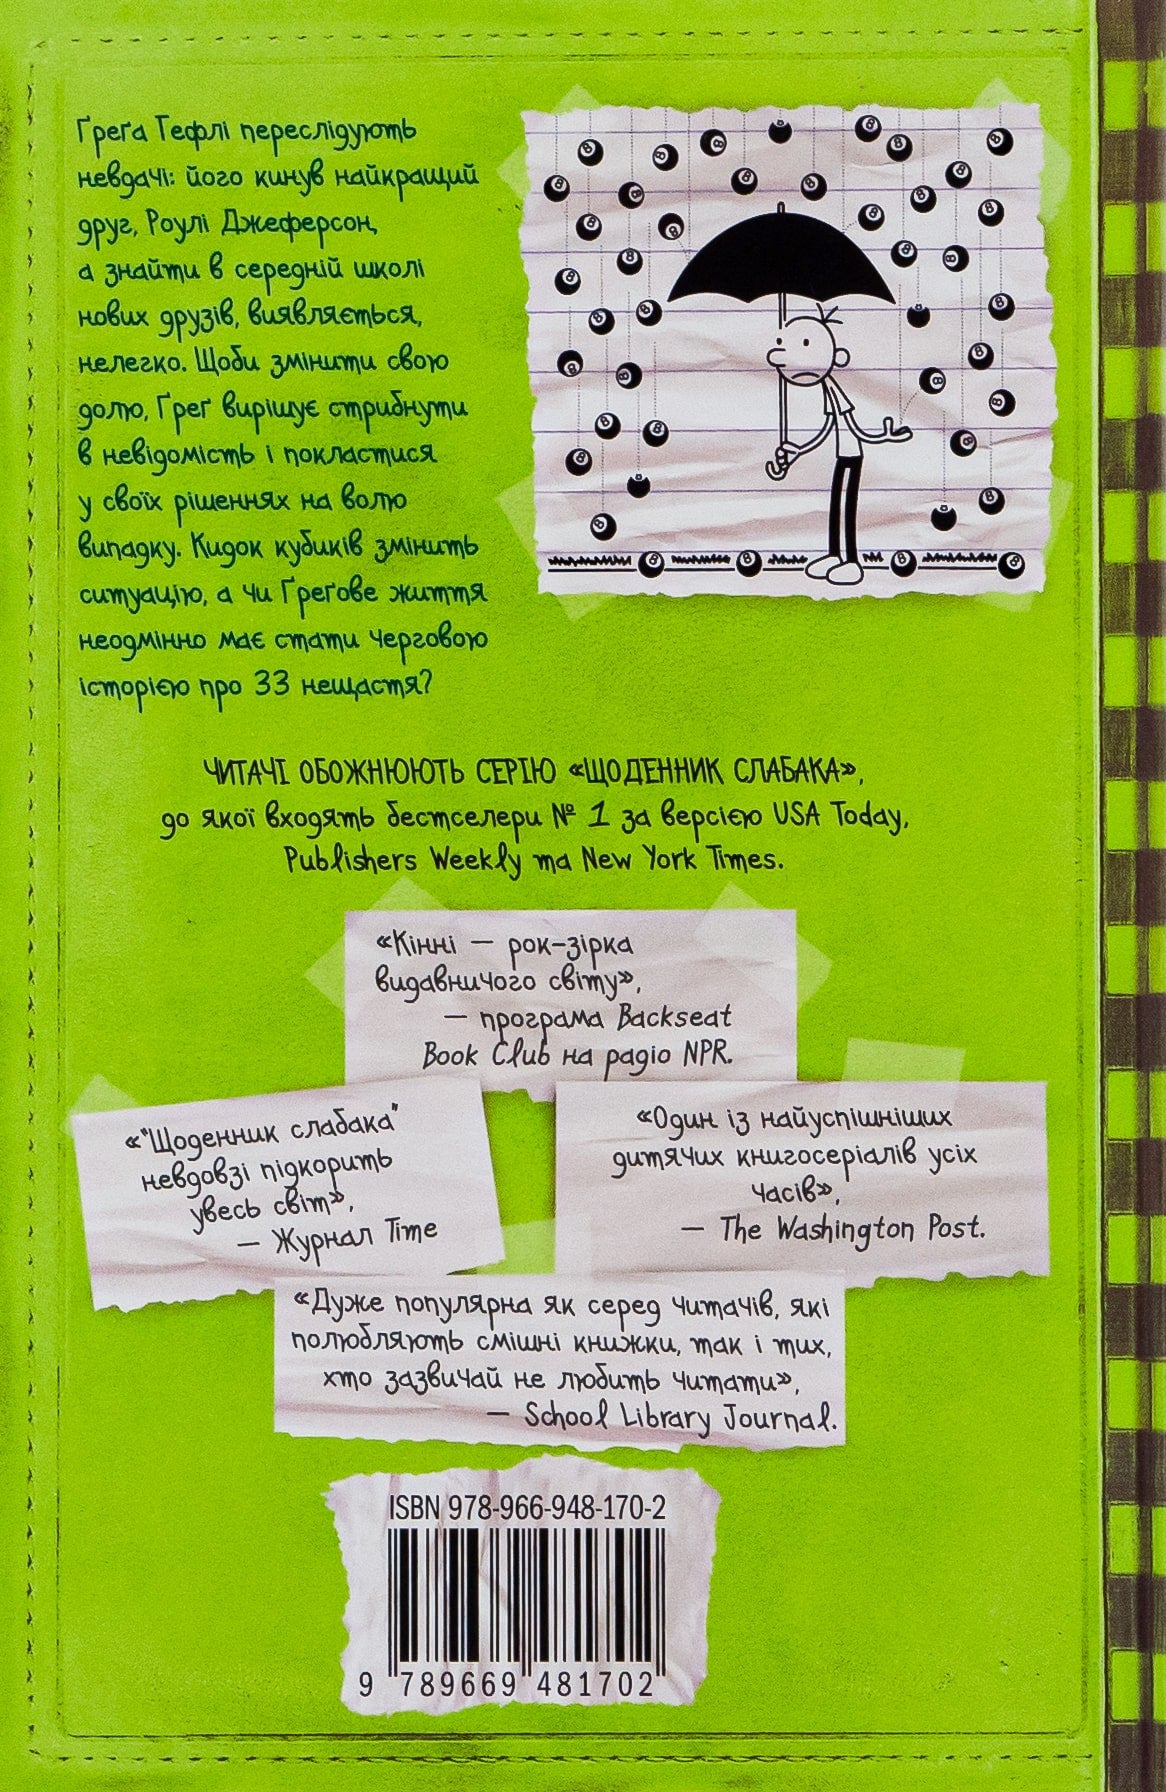 Ґреґа Гефлі переслідують
невдачі: його кинув найкращий
друг, Роулі Джеферсон,
а знайти в середній школі
нових друзів, виявляється,
нелегко. Щоби змінити свою
долю, Ґреґ вирішує стрибнути
в невідомість і покластися
у своїх рішеннях на волю
випадку. Кидок кубиків змінить
ситуацію, а чи Ґреґове життя
неодмінно має стати черговою
історією про 33 нещастя?
ЧИТАЧІ ОБОЖНЮЮТЬ СЕРІЮ «ЩОДЕННИК СЛАБАКА»,
до якої входять бестселери № 1 за версією USA Today,
Publishers Weekly та New York Times.
«Кінні — рок-зірка
видавничого світу»,
— програма Backseat
Book Club на радіо NPR.
«"Щоденник слабака"
невдовзі підкорить
увесь світ»,
— Журнал Time
«Один із найуспішніших
дитячих книгосеріалів усіх
часів»,
— The Washington Post.
«Дуже популярна як серед читачів, які
полюбляють смішні книжки, так і тих,
хто зазвичай не любить читати»,
— School Library Journal.
ISBN 978-966-948-170-2
9 789669 481702